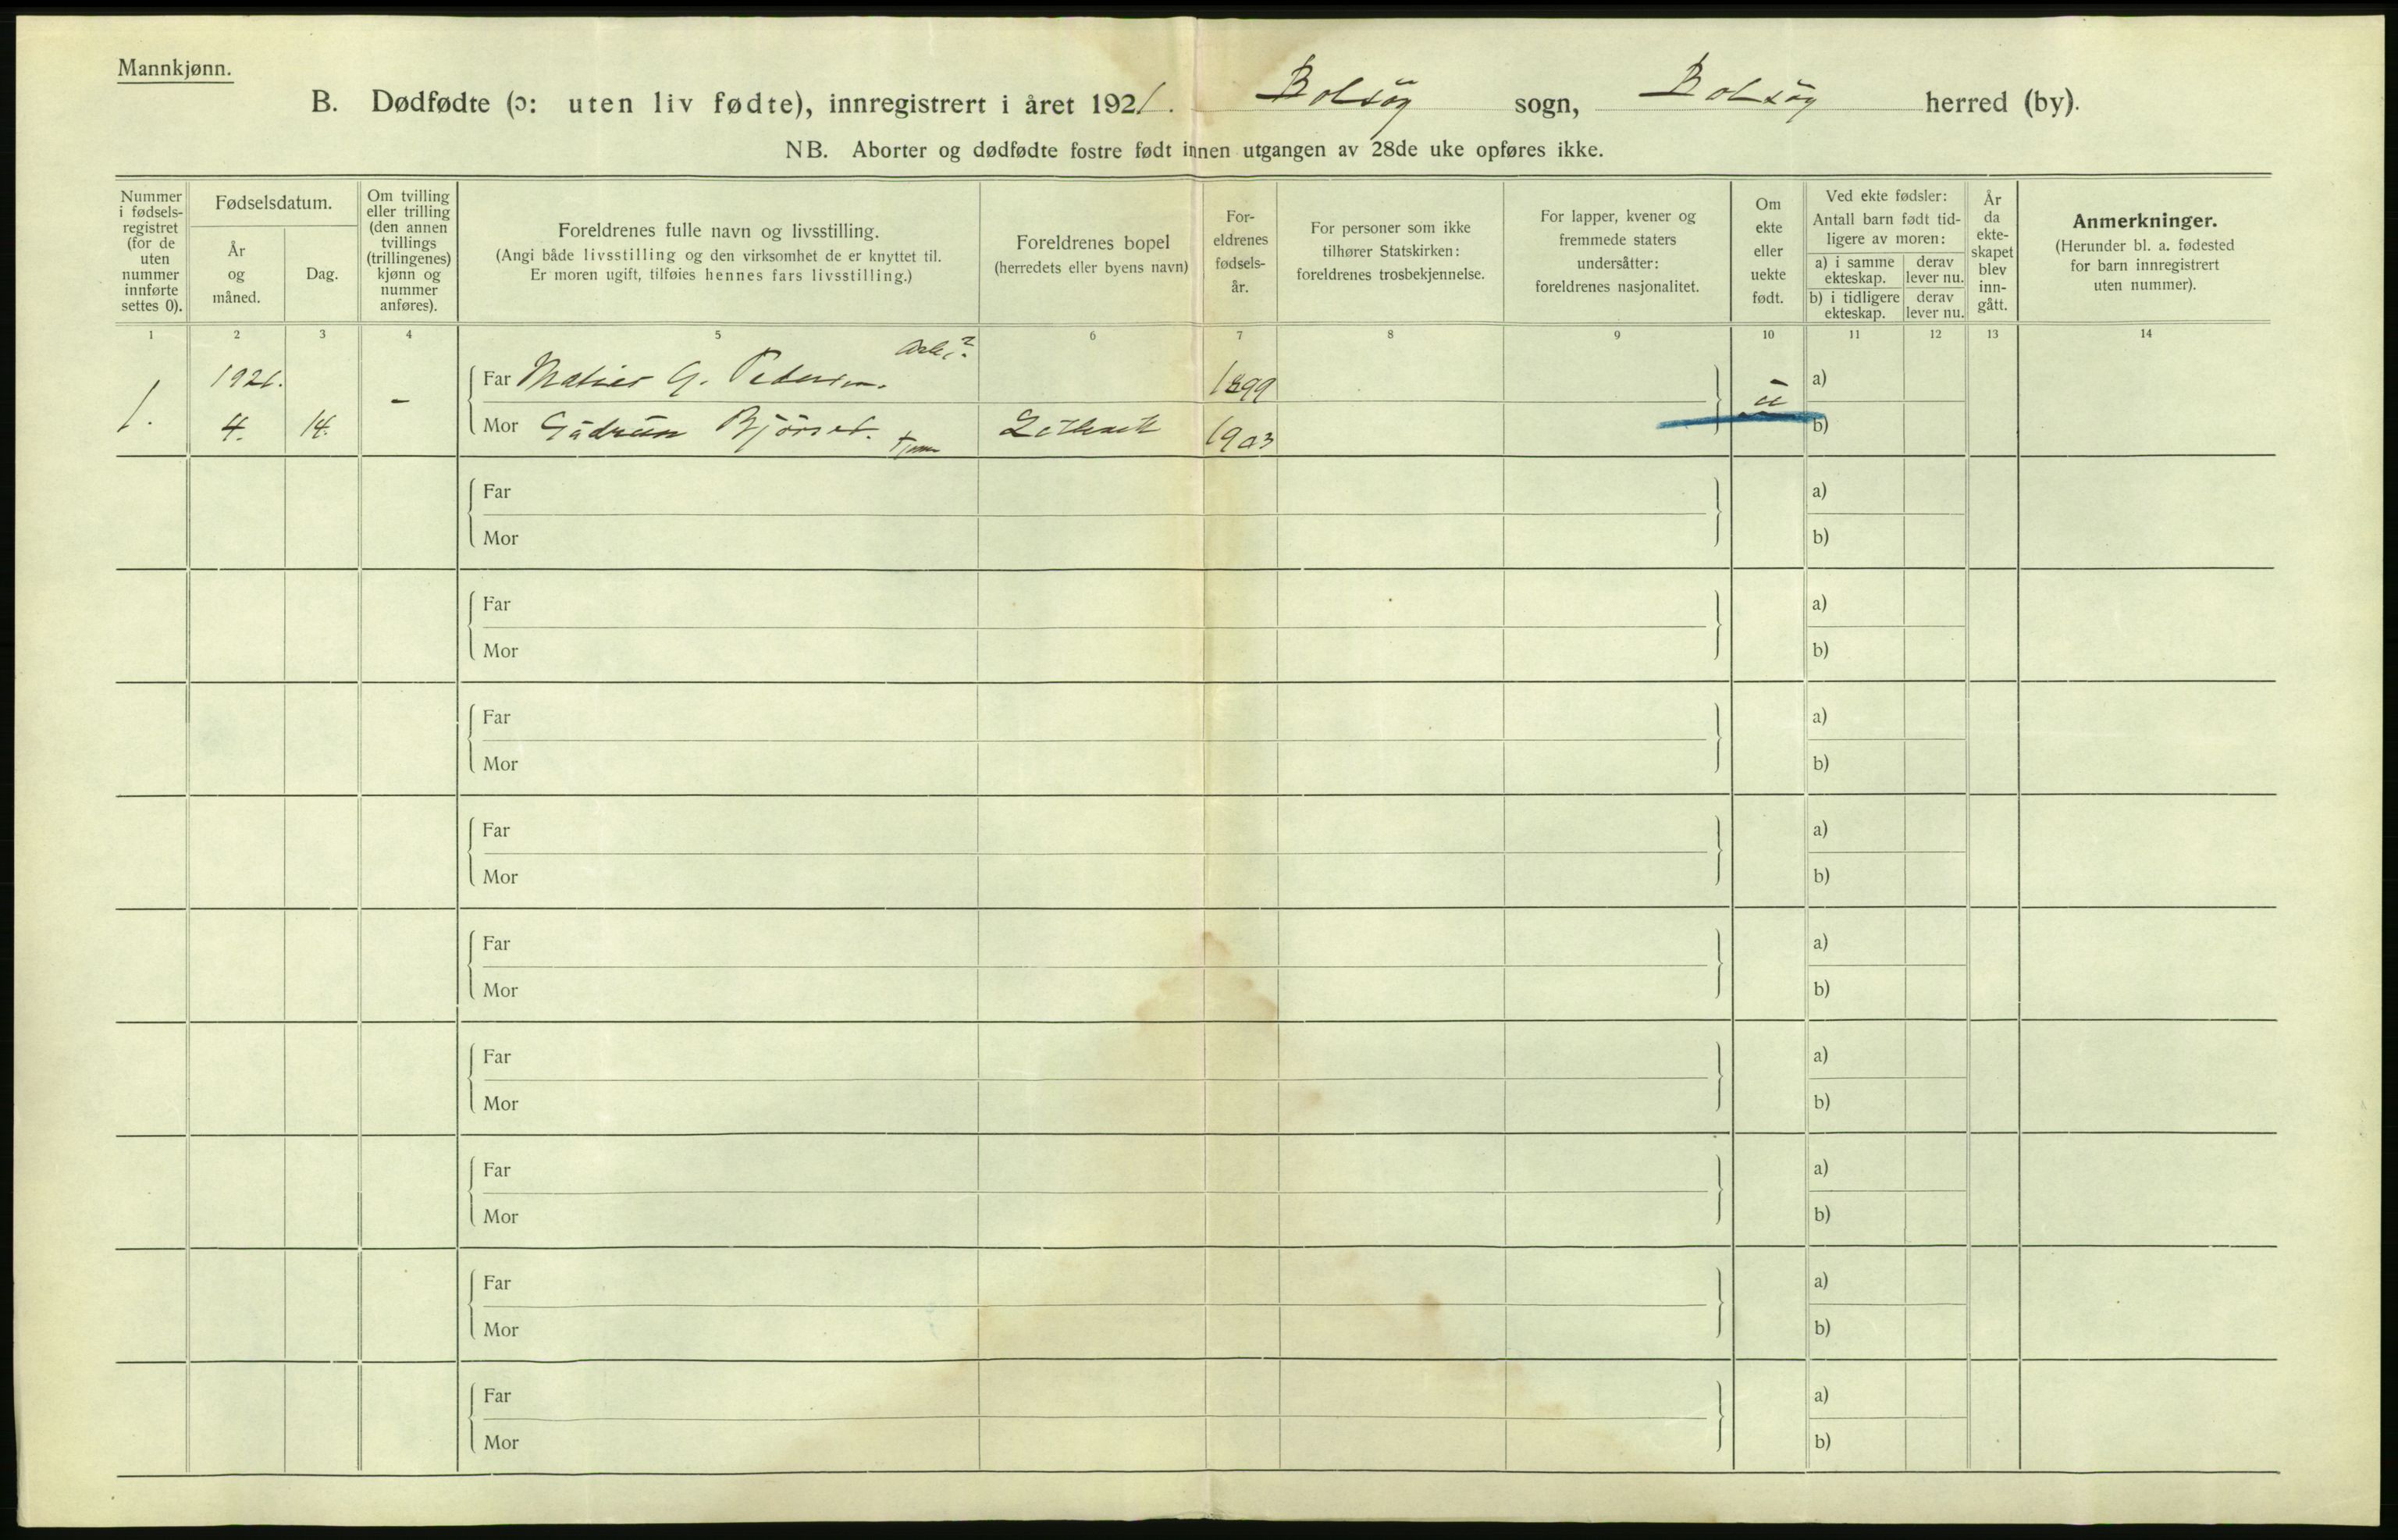 Mannkjønn.
B. Dødfødte (ɔ: uten liv fødte), innregistrert i året 1921. Bolsøy sogn, Bolsøy herred (by).
NB. Aborter og dødfødte fostre født innen utgangen av 28de uke opføres ikke.
Nummer
i fødsels-
registret
(for de
uten
nummer
innførte
settes 0).
Fødselsdatum.
År
og
måned.
Dag.
Om tvilling
eller trilling
(den annen
tvillings
(trillingenes)
kjønn og
nummer
anføres).
Foreldrenes fulle navn og livsstilling.
(Angi både livsstilling og den virksomhet de er knyttet til.
Er moren ugift, tilføies hennes fars livsstilling.)
Foreldrenes bopel
(herredets eller byens navn)
For-
eldrenes
fødsels-
år.
For personer som ikke
tilhører Statskirken:
foreldrenes trosbekjennelse.
For lapper, kvener og
fremmede staters
undersåtter:
foreldrenes nasjonalitet.
Om
ekte
eller
uekte
født.
Ved ekte fødsler:
Antall barn født tid-
ligere av moren:
a) i samme
ekteskap.
derav
lever nu.
b) i tidligere
ekteskap.
derav
lever nu.
År
da
ekte-
skapet
blev
inn-
gått.
Anmerkninger.
(Herunder bl. a. fødested
for barn innregistrert
uten nummer).
1 2 3 4 5 6 7 8 9 10 11 12 13 14
Arb.?
1921. Far G. Pedersen. 1899 a)
1. 4. 14. - Mor Gudrun Bjørset. 1903 u b)
Far a)
Mor b)
Far a)
Mor b)
Far a)
Mor b)
Far a)
Mor b)
Far a)
Mor b)
Far a)
Mor b)
Far a)
Mor b)
Far a)
Mor b)
Far a)
Mor b)